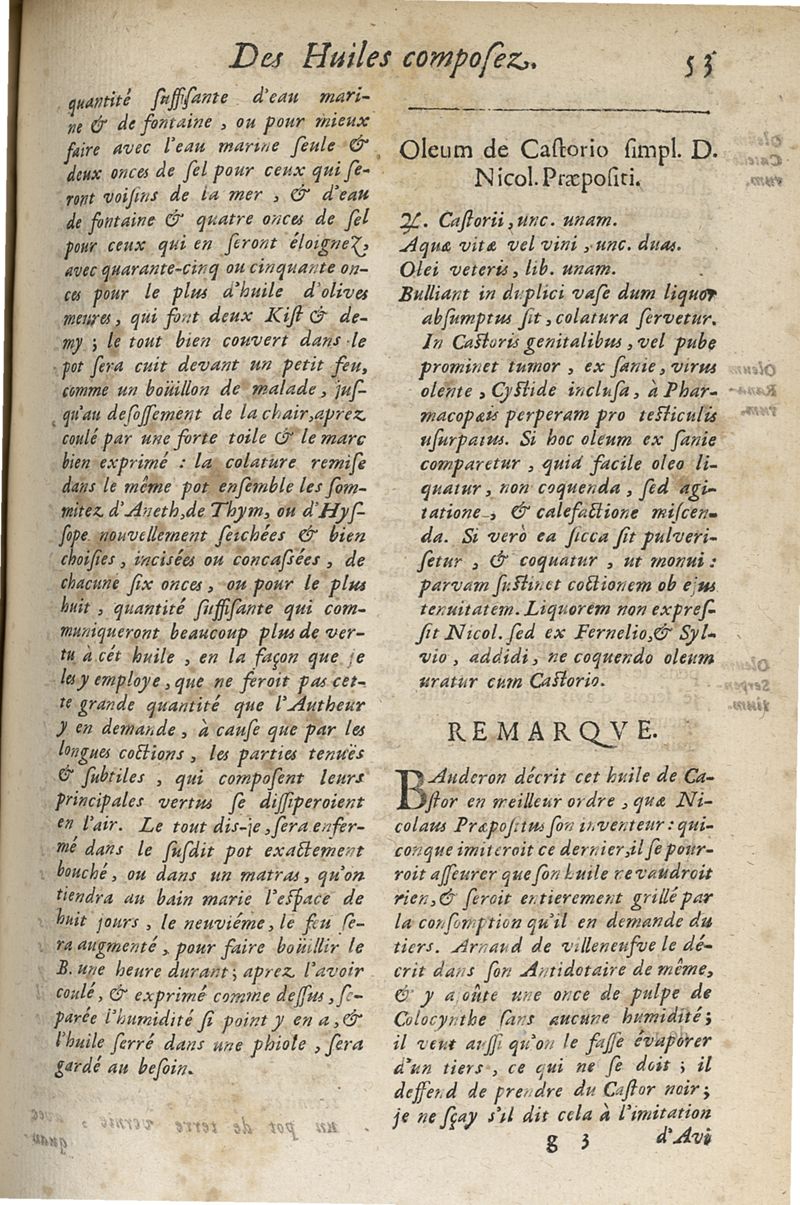 Des Huiles compoſez.
53
quantité ſuffiſante d'eau mari-
ne & de fontaine, ou pour mieux
faire avec l'eau marine ſeule &
deux onces de ſel pour ceux qui ſe-
ront voiſins de la mer, & d'eau
de fontaine & quatre onces de ſel
pour ceux qui en ſeront éloignez,
avec quarante-cinq ou cinquante on-
ces pour le plus d'huile d'olives
meures, qui font deux Kiſt & de-
my; le tout bien couvert dans le
pot ſera cuit devant un petit feu,
comme un boüillon de malade, juſ-
qu'au deſoſſement de la chair, aprez
coulé par une forte toile & le marc
bien exprimé: la colature remiſe
dans le même pot enſemble les ſom-
mitez d'Aneth, de Thym, ou d'Hyſ-
ſope nouvellement ſeichées & bien
choiſies, inciſées ou concaſſées, de
chacune ſix onces, ou pour le plus
huit, quantité ſuffiſante qui com-
muniqueront beaucoup plus de ver-
tu à cét huile, en la façon que je
les y employe, que ne feroit pas cet-
te grande quantité que l'Autheur
y en demande, à cauſe que par les
longues coctions, les parties tenuës
& ſubtiles, qui compoſent leurs
principales vertus ſe diſſiperoient
en l'air. Le tout dis-je, ſera enfer-
mé dans le ſuſdit pot exactement
bouché, ou dans un matras, qu'on
tiendra au bain marie l'eſpace de
huit jours, le neuviéme, le feu ſe-
ra augmenté, pour faire boüillir le
B. une heure durant; aprez l'avoir
coulé, & exprimé comme deſſus, ſe-
parée l'humidité ſi point y en a, &
l'huile ſerré dans une phiole, ſera
gardé au beſoin.
Oleum de Caſtorio ſimpl. D.
Nicol. Præpoſiti.
℞. Caſtorii, unc. unam.
Aquæ vitæ vel vini, unc. duas.
Olei veteris, lib. unam.
Bulliant in duplici vaſe dum liquor
abſumptus ſit, colatura ſervetur.
In Caſtoris genitalibus, vel pube
prominet tumor, ex ſanie, virus
olente, Cyſtide incluſa, à Phar-
macopæis perperam pro teſticulis
uſurpatus. Si hoc oleum ex ſanie
comparetur, quid facile oleo li-
quatur, non coquenda, ſed agi-
tatione, & calefactione miſcen-
da. Si verò ea ſicca ſit pulveri-
ſetur, & coquatur, ut monui:
parvam ſuſtinet coctionem ob ejus
tenuitatem. Liquorem non expreſ-
ſit Nicol. ſed ex Fernelio, & Syl-
vio, addidi, ne coquendo oleum
uratur cum Caſtorio.
REMARQVE.
BAuderon décrit cet huile de Ca-
ſtor en meilleur ordre, quæ Ni-
colaus Præpoſitus ſon inventeur: qui-
conque imiteroit ce dernier, il ſe pour-
roit aſſeurer que ſon huile ne vaudroit
rien, & ſeroit entierement grillé par
la conſomption qu'il en demande du
tiers. Arnaud de villeneufve le dé-
crit dans ſon Antidotaire de même,
& y ajoûte une once de pulpe de
Colocynthe ſans aucune humidité;
il veut auſſi qu'on le faſſe évaporer
d'un tiers, ce qui ne ſe doit; il
deffend de prendre du Caſtor noir;
je ne ſçay s'il dit cela à l'imitation
g 3
d'Avi